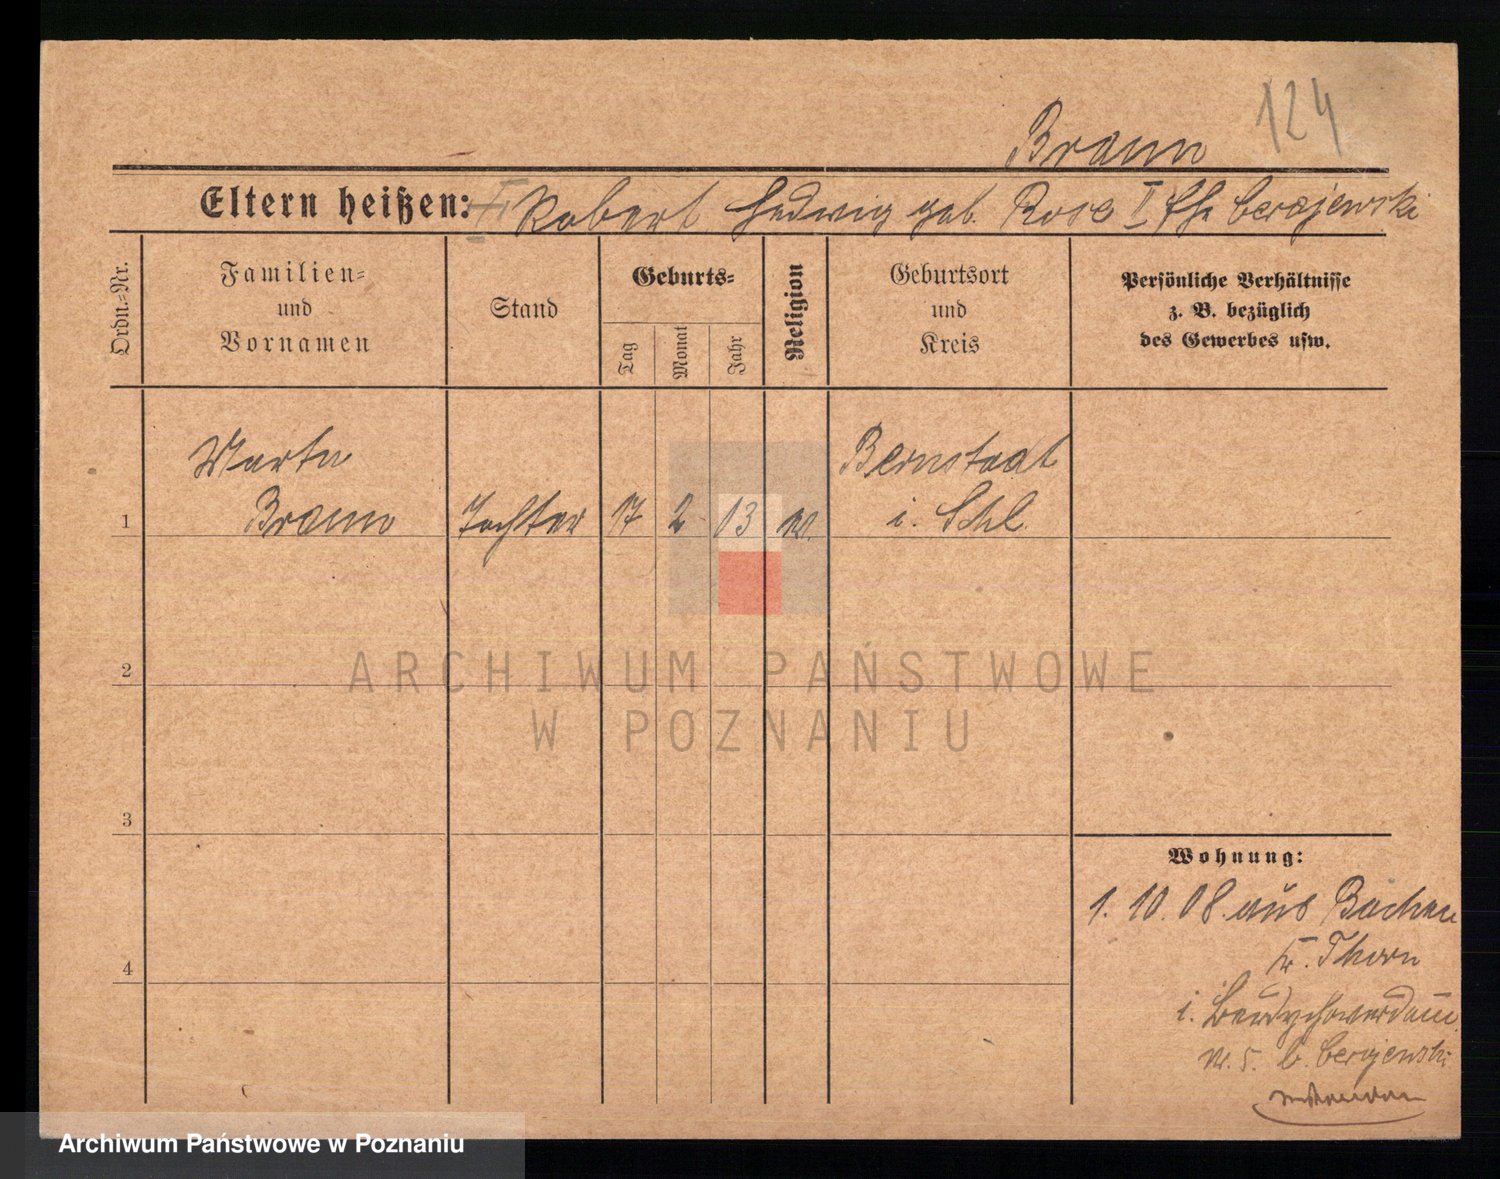 124
Braun
Eltern heißen: I Robert Hedwig geb. Rose II Eh. Cerajewski
Ordn.-Nr.
Familien-
und
Vornamen
Stand
Geburts-
Tag
Monat
Jahr
Religion
Geburtsort
und
Kreis
Persönliche Verhältnisse
z. B. bezüglich
des Gewerbes usw.
Marta
Braun
Bernstadt
i. Schl.
1
Tochter
17
2
13
2
3
4
ARCHIWUM PAŃSTWOWE
W POZNANIU
Wohnung:
1. 10. 08. aus
Kr. Thorn
i.
Nr. 5. b. Cerajewski
Archiwum Państwowe w Poznaniu